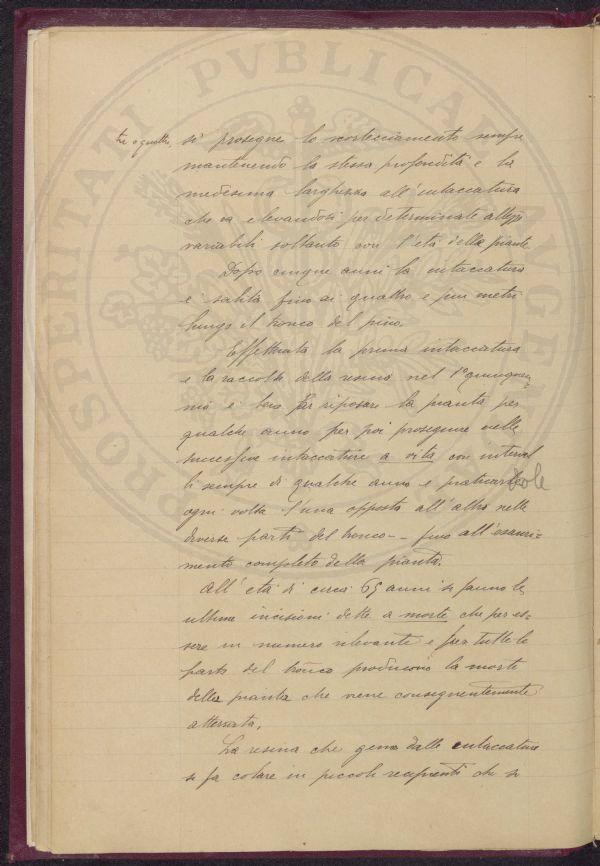 PROSPERITATI PVBLICAE AVGENDAE
tre o quattro, si prosegue lo scortecciamento sempre
mantenendo la stessa profondità e la
medesima larghezza all'intaccatura
che va elevandosi per determinate altezze
variabili soltanto con l'età della pianta
Dopo cinque anni la intaccatura
è salita fino ai quattro e più metri
lungo il tronco del pino.
Effettuata la prima intaccatura
e la raccolta della resina nel 1° quinquen-
nio è bene far riposare la pianta per
qualche anno per poi proseguire nelle
successive intaccature a vita con interval
li sempre di qualche anno e praticandole
ogni volta l'una opposta all'altra nelle
diverse parti del tronco - - fino all'esauri-
mento completo della pianta.
All'età di circa 65 anni si fanno le
ultime incisioni dette a morte che per es-
sere in numero rilevante e fra tutte le
parti del tronco producono la morte
della pianta che viene conseguentemente
atterrata.
La resina che geme dalle intaccature
si fa colare in piccoli recipienti che si